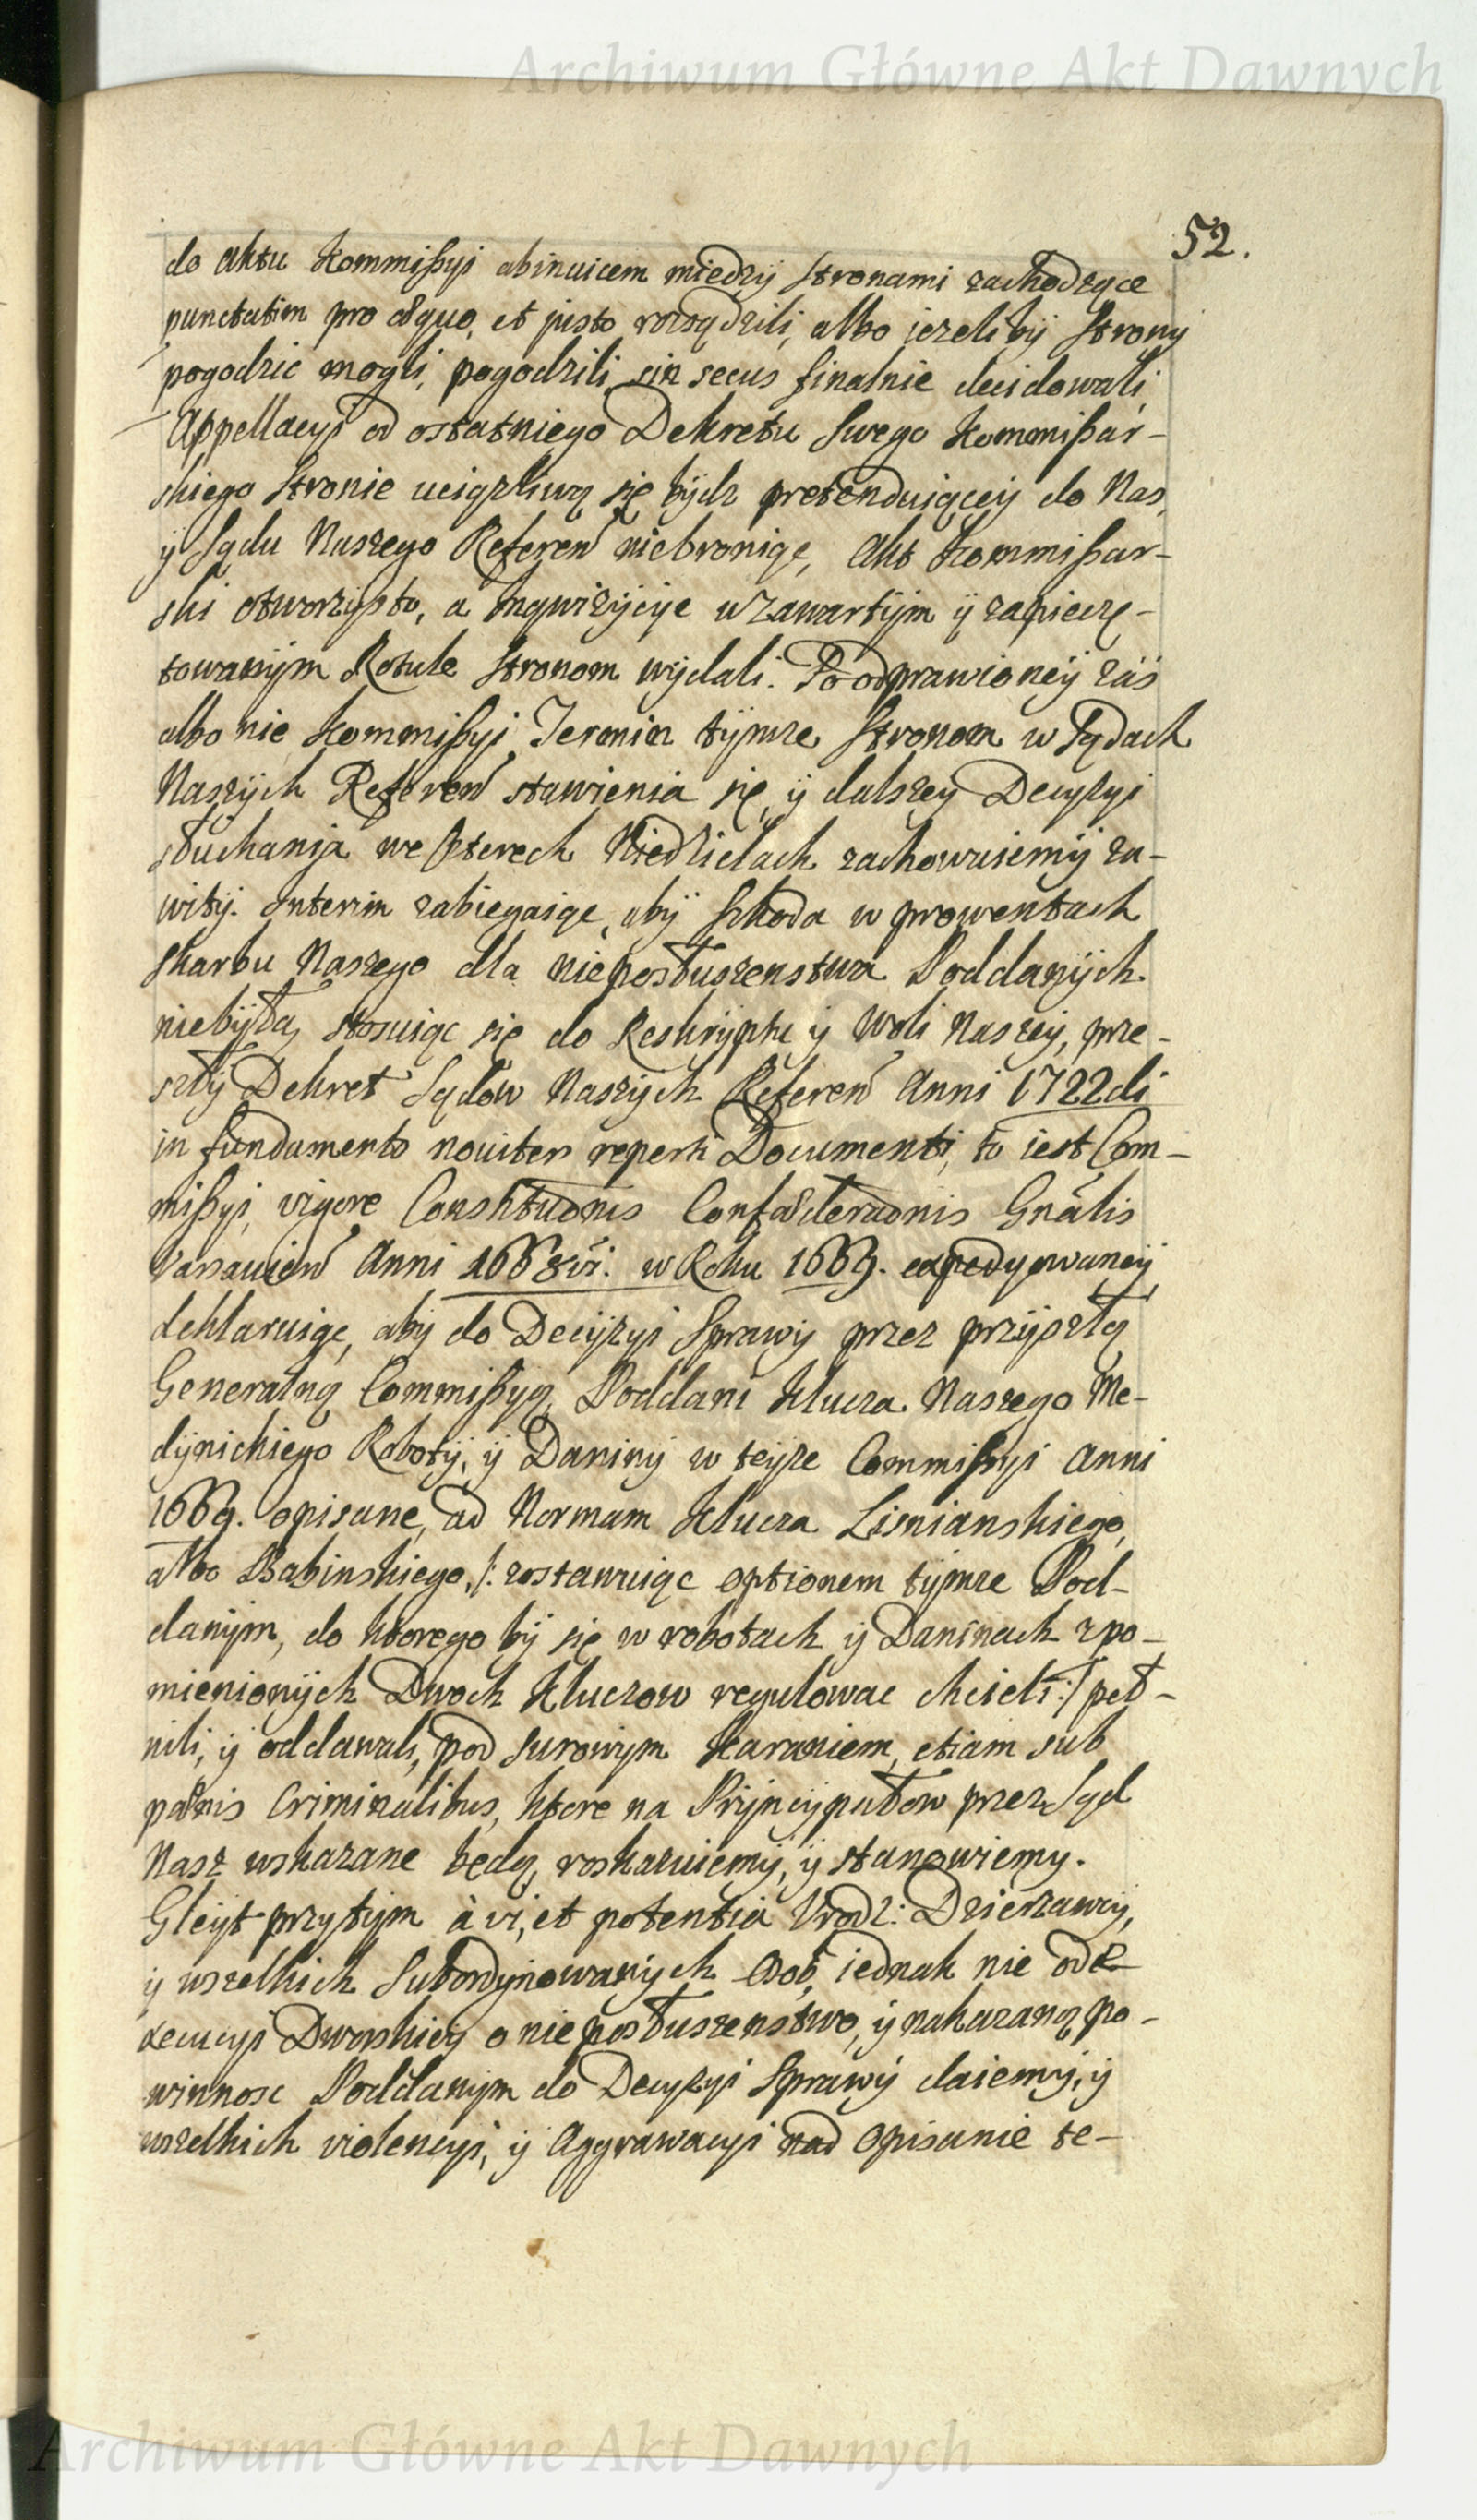 Archiwum Główne Akt Dawnych
52.
do aktu Kommißyi abinuicem między stronami zachodzące
punctatim pro æquo, et justo rozsądzili, albo ieżeliby Strony
pogodzic mogli, pogodzili, sin secus finalnie decidowali,
Appellacyi od ostatniego Dekretu Swego Kommißar-
skiego Stronie uciążliwą się bydz pretenduiącey do Nas,
ÿ Sądu Naszego Referen̄ niebroniąc, Akt Kommißar-
ski otworzysto, a Inqwizÿcye w zawartÿm ÿ zapieczę-
towanÿm Rotule Stronom wÿdali. Po odprawioneÿ zaś
albo nie Kommißyi, Termin tÿmze Stronom w Sądach
Naszÿch Referen̄ stawienia się, ÿ dalszey Decyzyi
słuchania we czterech Niedzielach zachowuiemÿ za-
witÿ. Interim zabiegaiąc, abÿ Szkoda w prowentach
Skarbu Naszego dla nieposłuszenstwa Poddanÿch
niebÿła, stosuiąc się do Reskrÿptu ÿ Woli Naszeÿ, prze-
szłÿ Dekret Sądow Naszÿch Referen̄ Anni 1722di
in fundamento noviter reperti Documenti, to iest Com-
mißyi, vigore Constitu͠onis Confæderaonis Gnâlis
Varsavien̄ Anni 1668vi. w Roku 1669. expedyowaneÿ,
deklaruiąc, abÿ do Decÿzyi Sprawÿ przez przÿszłą
Generalną Commißyą, Poddani Klucza Naszego Me-
dÿnickiego Robotÿ, ÿ Daninÿ w teÿze Commißyi Anni
1669. opisane, ad Normam Klucza Lisnianskiego,
albo Babinskiego, /: zostawuiąc optionem tÿmze Pod-
danÿm, do ktorego bÿ się w robotach ÿ Daninach z po-
mienionÿch Dwoch Kluczow regulowac chcieli :/ peł-
nili, ÿ oddawali, pod surowÿm Karaniem, etiam sub
pænis Criminalibus, ktore na Prÿncÿpałow przez Sąd
Nasz wskazane będą, roskazuiemÿ, ÿ stanowiemy.
Gleÿt przytÿm à vi, et potentia Urodz: Dzierzawcÿ,
ÿ wszelkich Subordynowanÿch Osob, iednak nie od e-
xecucyi Dworskieÿ o nieposłuszenstwo, ÿ nakazaną po-
winnosc Poddanÿm do Decyzyi Sprawÿ daiemÿ, ÿ
wszelkich violencyi, ÿ Aggrawacyi nad opisanie te-
Archiwum Główne Akt Dawnych